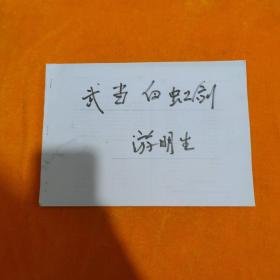 武当白虹剑
游明生